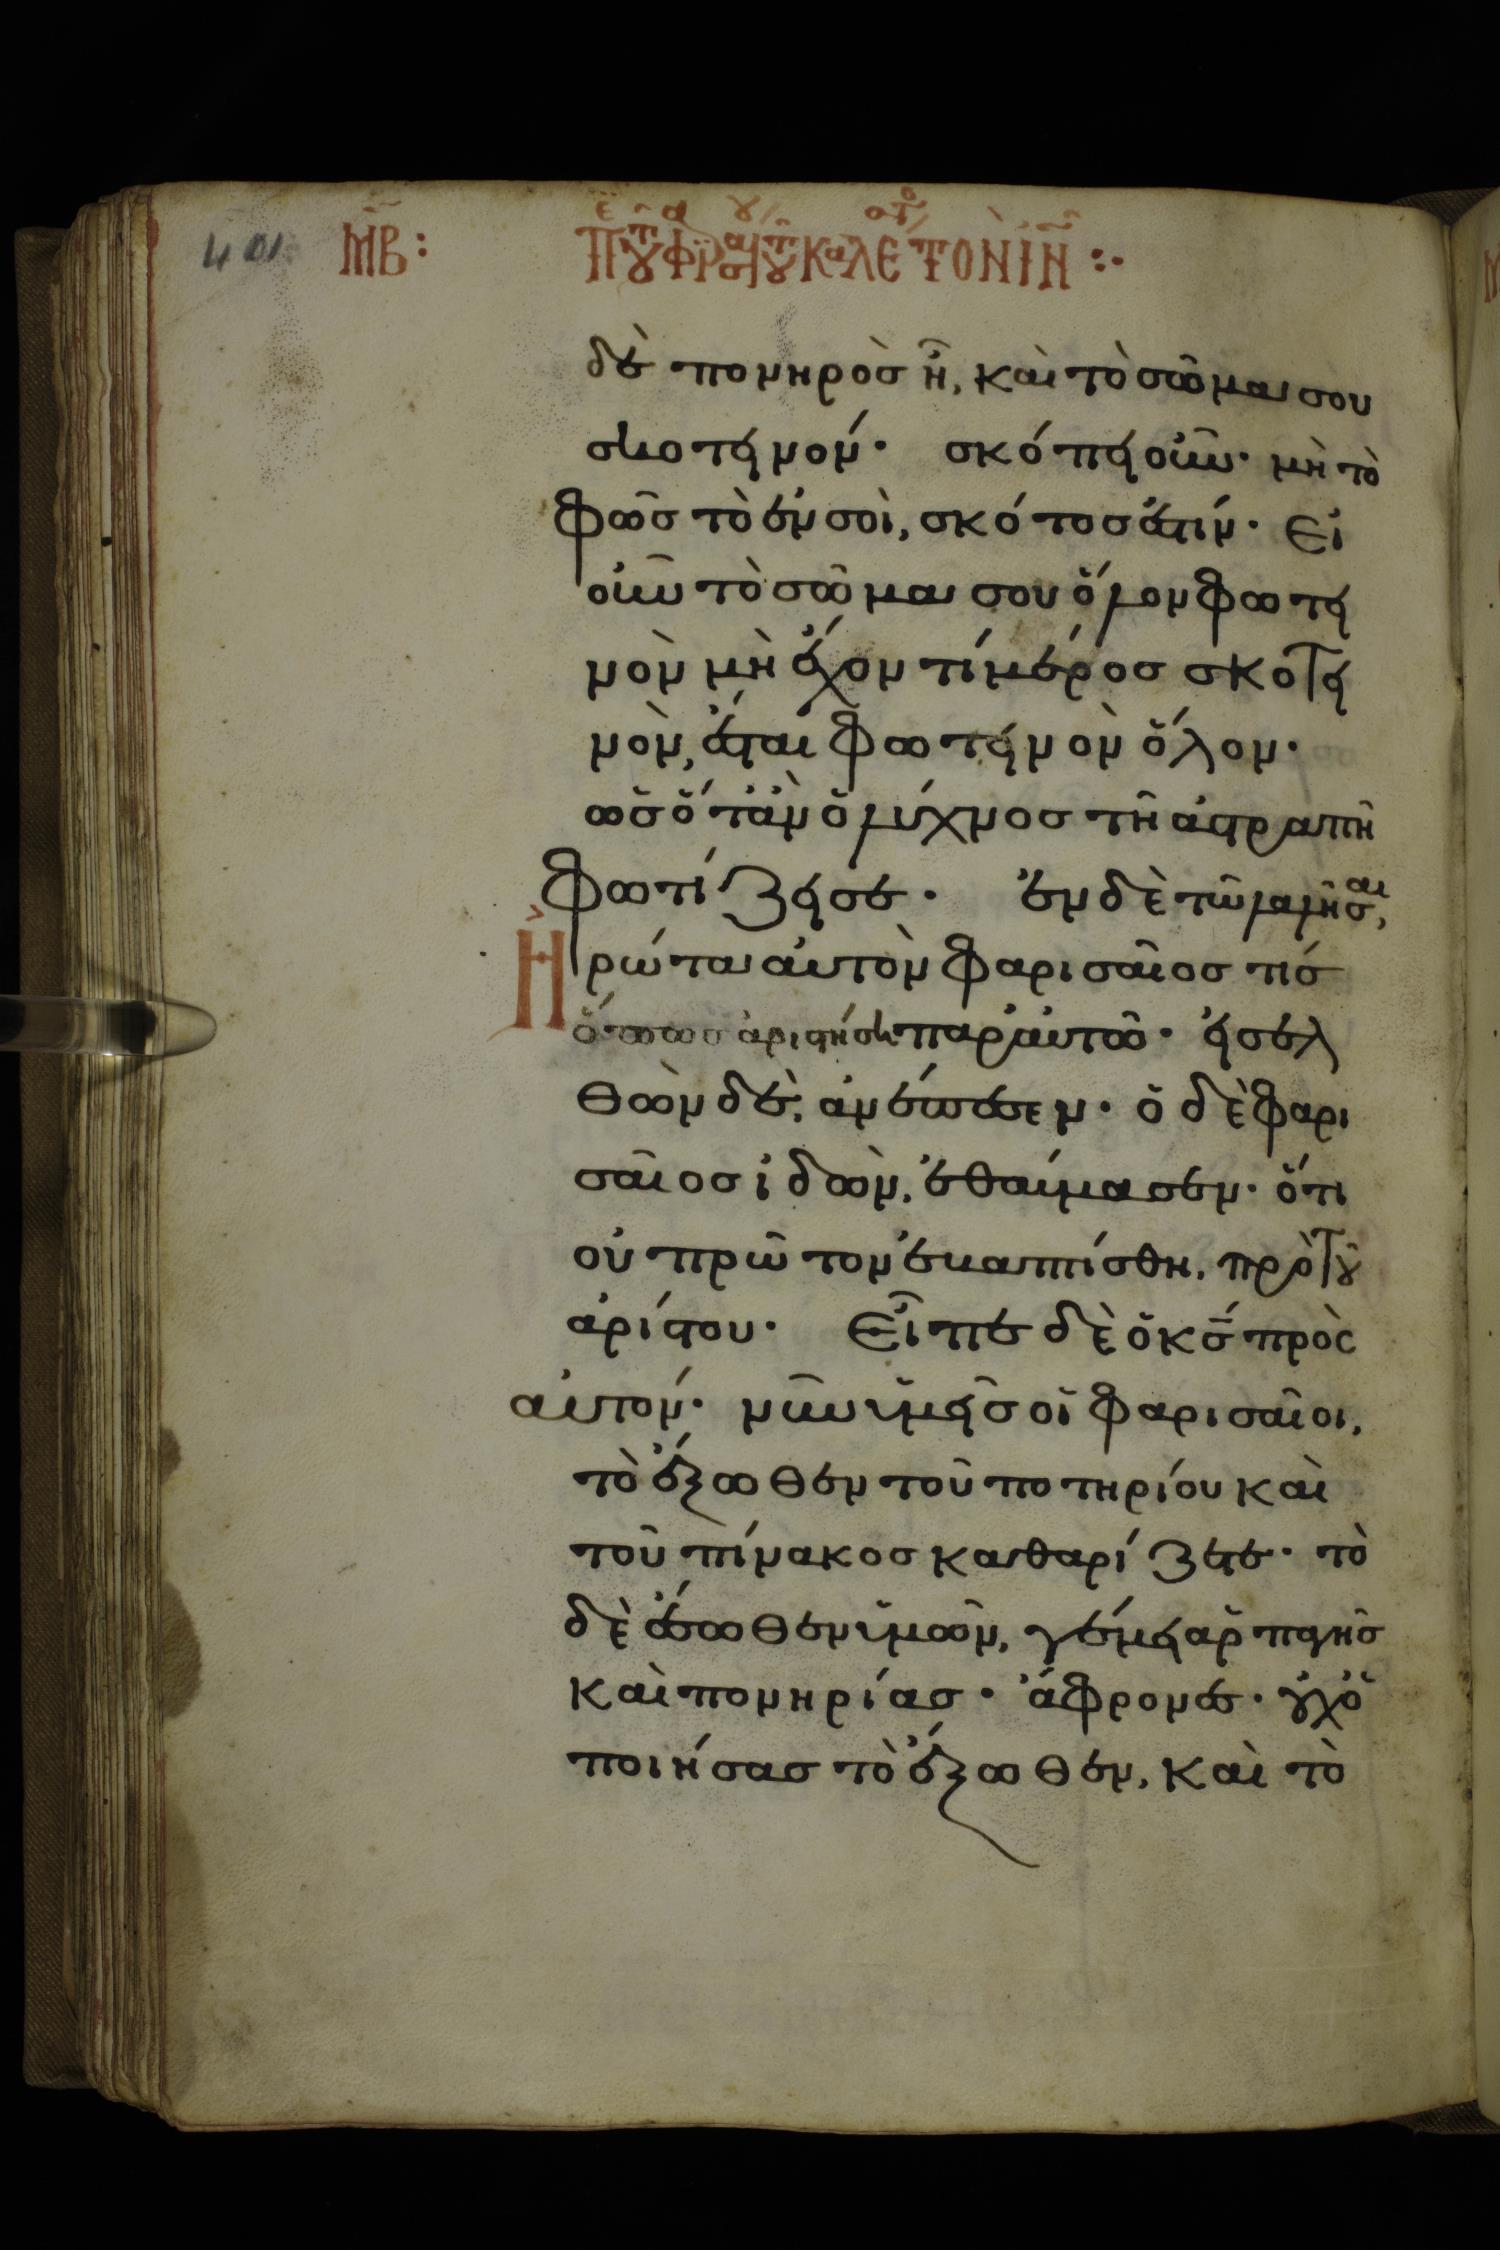 401
ΜΒ:
ΤΟΝ ΙΝ :·
δὲ πονηρὸς ἦ, καὶ τὸ σῶμα σου
σκοτεινόν· σκόπει οὖν· μὴ τὸ
φῶς τὸ ἐν σοὶ, σκότος ἐστίν· Εἰ
οὖν τὸ σῶμα σου ὅλον φωτει
νὸν μὴ ἔχον τί μέρος σκοτει
νὸν, ἔσται φωτεινὸν ὅλον·
ὡς ὅτἂν ὁ λύχνος τῆ ἀστραπῆ
φωτίζει σε· ἐν δὲ τῶ λαλῆσαι,
Ἠρώτα αὐτὸν φαρισαῖος τίς
ὅπως ἀριστήση παρ' αὐτῶ· εἰσελ
θὼν δὲ, ἀνέπεσεν· ὁ δὲ φαρι
σαῖος ἰδὼν, ἐθαύμασεν· ὅτι
οὐ πρῶτον ἐβαπτίσθη, πρὸ τοῦ
ἀρίστου· Εἶπε δὲ ὁ κ̅ς̅ πρὸς
αὐτόν· νῦν ὑμεῖς οἱ φαρισαῖοι,
τὸ ἔξωθεν τοῦ ποτηρίου καὶ
τοῦ πίνακος καθαρίζετε· τὸ
δὲ ἔσωθεν ὑμῶν, γέμει ἁρπαγῆς
καὶ πονηρίας· ἄφρονες· οὐχ ὁ
ποιήσας τὸ ἔξωθεν, καὶ τὸ